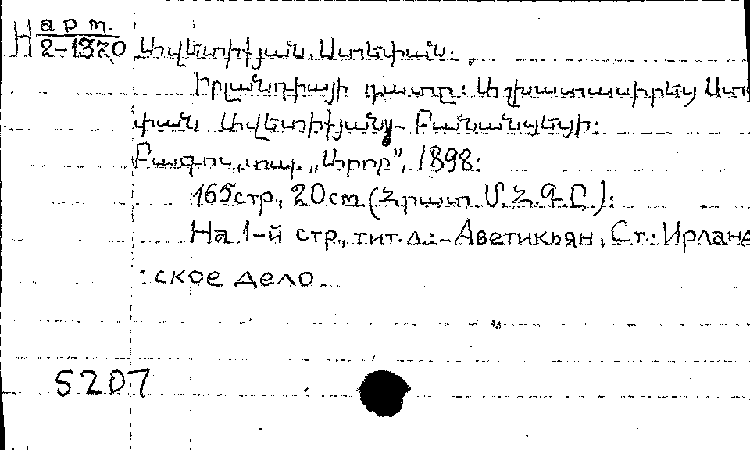 Н арт.
2-1370 Ավետիքյան Ստեփան.
Իրլանդիայի դատը: Աշխատասիրեց Ստե
փան Ավետիքյանց
Բագու, տպ. „Արոր”, 1898:
165стр, 20см (Հրատ Մ.Հ.Գ.Ը.):
На 1-й стр., тит. л.:- Аветикьян, Ст.: Ирланд
ское дело.
5207